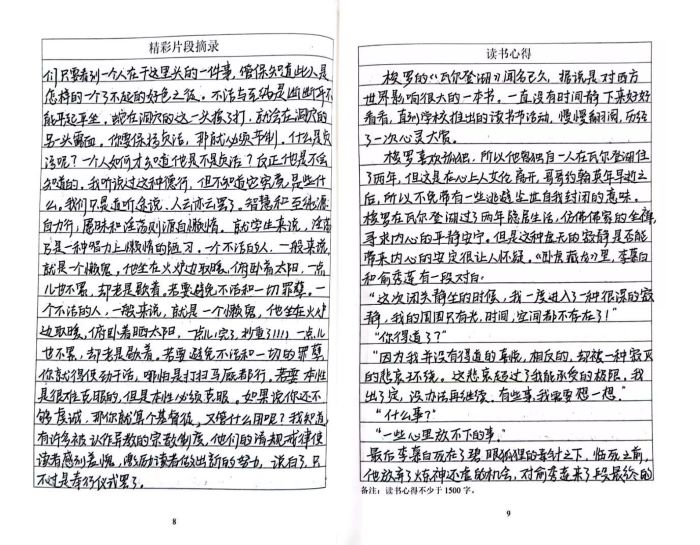 精彩片段摘录
们只要看到一个人在干这里头的一件事，管保知道此人是
怎样的一个了不起的好色之徒。不洁与至纯是断断乎不
能平起平坐，蛇在洞穴的这一头挨了打，就会在洞穴的
另一头露面。你要保持贞洁，那就必须节制。什么是贞
洁呢？一个人如何才知道他是不是贞洁？反正他是不会
知道的。我听说过这种德行，但不知道它究竟是些什
么，我们只是道听途说，人云亦云罢了。智慧和至纯源
自力行；愚昧和淫荡则源自懒惰。就学生来说，淫荡
乃是一种智力上懒惰的陋习。一个不洁的人，一般来说，
就是一个懒鬼，他坐在火炉边取暖，俯卧着太阳，一点
儿也不累，却老是歇着。若要避免不洁和一切罪孽。一
个不洁的人，一般来说，就是一个懒鬼，他坐在火炉
边取暖，俯卧着晒太阳，一点儿（完了，抄重了！！！！）一点儿
也不累，却老是歇着。若要避免不洁和一切的罪孽
你就得使劲干活，哪怕是打扫马厩都行。若要本性
是很难克服的，但是本性必须克服。如果说你还不
够虔诚，那你就算个基督徒，又管什么用呢？我知道
有许多被认作异教的宗教制度，他们的清规戒律使
读者感到羞愧，激励读者做出新的努力，说白了只
不过是奉行仪式罢了。
8
读书心得
梭罗的《瓦尔登湖》闻名已久，据说是对西方
世界影响很大的一本书。一直没有时间静下来好好
看看，直到学校推出的读书节活动，慢慢翻阅，历经
了一次心灵大赏。
梭罗喜欢孤独，所以他独自一人在瓦尔登湖住
了两年，但这是在心上人文化离开、哥哥约翰英年早逝之
后，所以不免带有一些逃避尘世自我封闭的意味。
梭罗在瓦尔登湖过了两年隐居生活，仿佛佛家的坐禅，
寻求内心的平静安宁。但是这种虚无的寂静是否能
带来内心的安定很让人怀疑。《卧虎藏龙》里，李慕白
和俞秀莲有一段对白：
“这次闭关静坐的时候，我一度进入了一种很深的寂
静，我的周围只有光，时间，空间都不存在了！”
“你得道了？”
“因为我并没有得道的喜悦，相反的，却被一种寂灭
的悲哀环绕。这悲哀超过了我能承受的极限，我
出了定，没办法再继续，有些事，我需要想一想。”
“什么事？”
“一些心里放不下的事。”
最后李慕白死在了碧眼狐狸的毒针之下，临死之前，
他放弃了炼神还虚的机会，对俞秀莲来了段最后的
备注：读书心得不少于1500字。
9